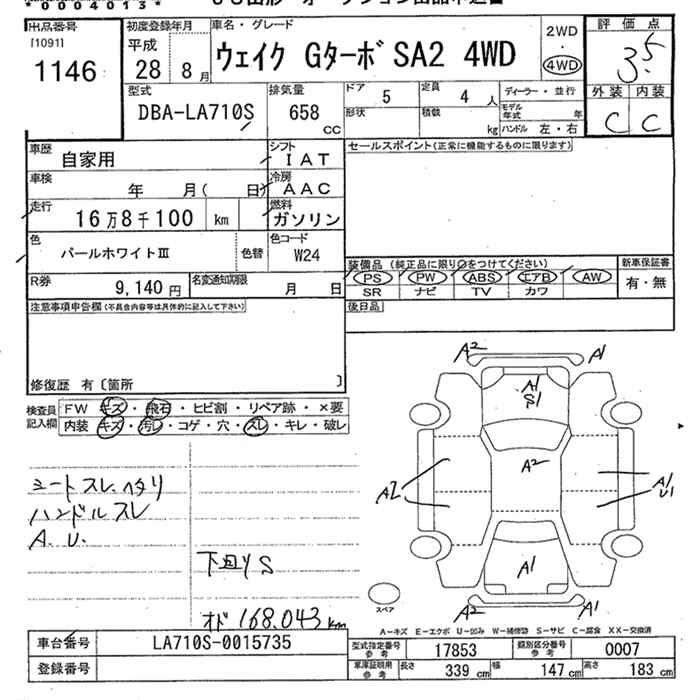 *0004013*
出品番号
[1091]
1146
初度登録年月
平成
28年 8月
車名・グレード
ウェイク Gターボ SA2 4WD
2WD
・
4WD
評価点
3.5
外装 内装
C C
型式
DBA-LA710S
排気量
658 CC
ドア 5
定員 4人
形状
積載 kg
ディーラー・並行
モデル年式 年
ハンドル 左・右
車歴 自家用
シフト IAT
車検 年 月( 日)
冷房 AAC
走行 16万8千100 km
燃料 ガソリン
色 パールホワイトⅢ
色替
色コード W24
R券 9,140円
名変通知期限 月 日
セールスポイント(正常に機能するものに限ります)
装備品(純正品に限り○をつけてください)
新車保証書
PS PW ABS エアB AW
有・無
SR ナビ TV カワ
後日品
注意事項申告欄(不具合内容等は具体的に記入して下さい)
修復歴 有〔箇所 〕
検査員記入欄
FW キズ・飛石・ヒビ割・リペア跡・×要
内装 キズ・汚レ・コゲ・穴・スレ・キレ・破レ
シートスレ、ヘタリ
ハンドルスレ
A.U.
下回りS
オド 168.043km
A2 A1
A1
S1
A2
A2
A1
U1
A1
A2 A1
スペア
A-キズ E-エクボ U-凹み W-補修跡 S-サビ C-腐食 XX-交換済
車台番号 LA710S-0015735
登録番号
型式指定番号 参考 17853
類別区分番号 参考 0007
車庫証明用 参考
長さ 339cm 幅 147cm 高さ 183cm